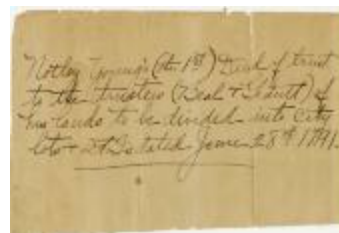 Notley Young's (the 1st) Deed of trust
to the trustees (Beal & Gantt) of
his lands to be divided into City
lots & dated June 28th 1791.